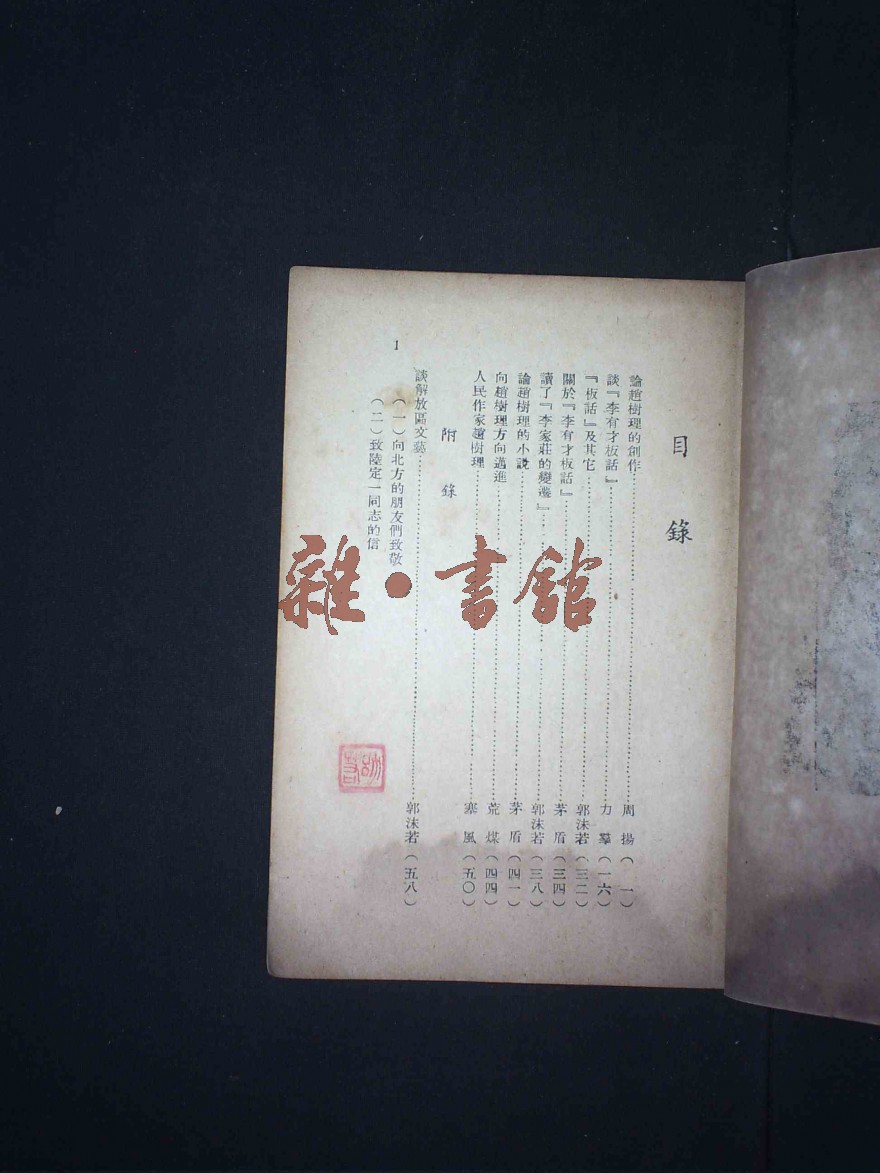 目錄
論趙樹理的創作……周揚(一)
談『李有才板話』……力羣(一六)
『板話』及其它……郭沫若(三二)
關於『李有才板話』……茅盾(三四)
讀了『李家莊的變遷』……郭沫若(三八)
論趙樹理的小說……茅盾(四一)
向趙樹理方向邁進……荒煤(四四)
人民作家趙樹理……寒風(五〇)
附錄
談解放區文藝……郭沫若(五八)
(一)向北方的朋友們致敬
(二)致陸定一同志的信
1
雜·書館